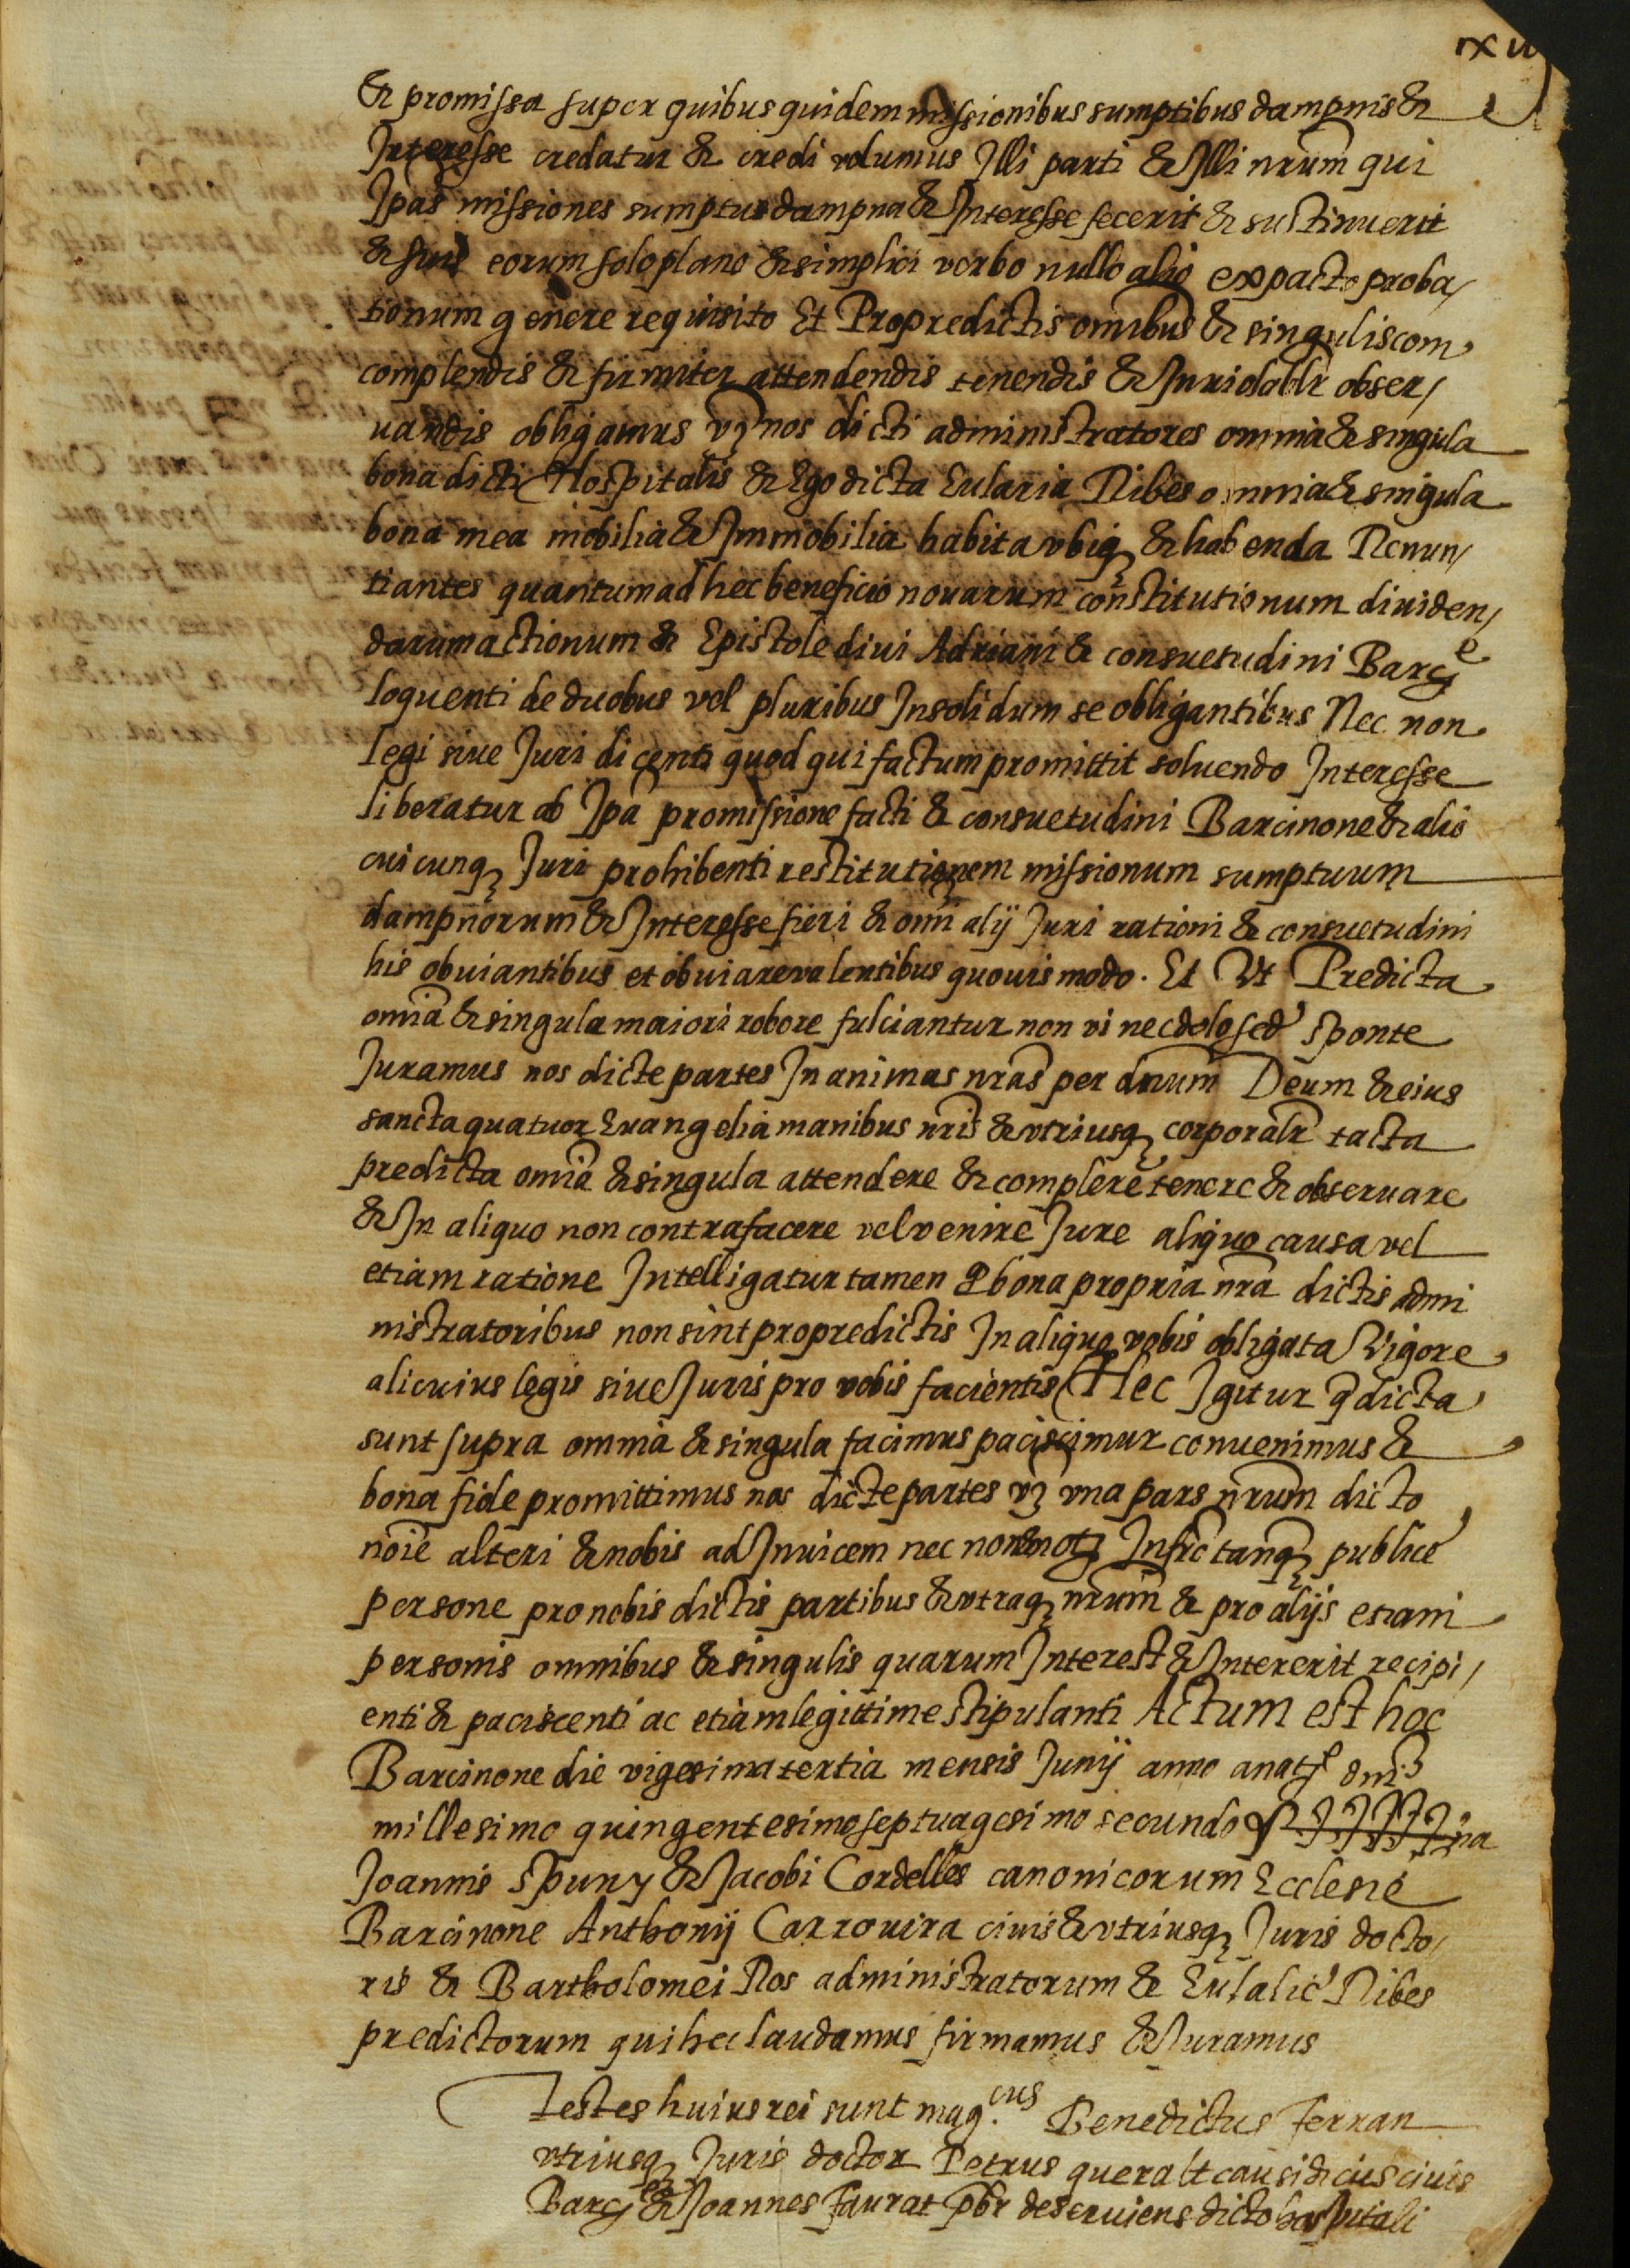 rxiij
Et promissa super quibus quidem missionibus sumptibus dampnis &
Interesse credatur & credi volumus Illi parti & Illi nrum̄ qui
Ipas̄ missiones sumptus dampna & Interesse fecerit & sustinuerit
& suis eorum solo plano & simplici verbo nullo alio expacto proba/
tionum genere requisito Et Pro predictis omnibus & singulis com
complendis & firmiter attendendis tenendis & Inviolablr̄ obser/
uandis obligamus vꝫ nos dicti administratores omnia & singula
bona dicti Hospitalis & Ego dicta Eularia Ribes omnia & singula
bona mea mobilia & Immobilia habita vbiqꝫ & habenda Renun/
tiantes quantum ad hec beneficio nouarum constitutionum diuiden/
darum actionum & Epistole diui Adriani & consuetudini Barcᵉ
loquenti de duobus vel pluribus Insolidum se obligantibus Nec non
legi siue Juri dicenti quod qui factum promittit soluendo Interesse
liberatur ab Ipā promissione facti & consuetudini Barcinone & alio
cuicunqꝫ Juri prohibenti restitutionem missionum sumptuum
dampnorum & Interesse fieri & omī alij Juri rationi & consuetudini
his obuiantibus et obuiare valentibus quouis modo. Et Vt Predicta
omīa & singula maiori robore fulciantur non vi nec dolo sed sponte
Juramus nos dicte partes In animas nrās per dnum̄ Deum & eius
sancta quatuor Euangelia manibus nrīs & vtriusqꝫ corporalr̄ tacta
predicta omīa & singula attendere & complere tenere & obseruare
& In aliquo non contrafacere vel venire Jure aliquo causa vel
etiam ratione Intelligatur tamen ꝙ bona propria nrā dictis admi
nistratoribus non sint pro predictis In aliquo vobis obligata Vigore
alicuius legis siue Juris pro vobis facientis Hec Igitur q̄ dicta
sunt supra omnia & singula facimus paciscimur conuenimus &
bona fide promittimus nos dicte partes vꝫ vna pars nrum̄ dicto
noīe alteri & nobis ad Inuicem nec non & notꝫ Infrō tanqꝫ publice
persone pro nobis dictis partibus & vtraqꝫ nrum̄ & pro alijs etiam
personis omnibus & singulis quarum Interest & Intererit recipi/
enti & paciscenti ac etiam legittime stipulanti Actum est hoc
Barcinone die vigesima tertia mensis Junij anno anatᵉ dnī
millesimo quingentesimo septuagesimo secundo
Joannis Spuny & Jacobi Cordelles canonicorum Ecclesie
Barcinone Anthonij Carrouira ciuis & vtriusqꝫ Juris docto/
ris & Bartholomei Ros administratorum & Eulalie Ribes
predictorum qui hec laudamus firmamus & Juramus
Testes huius rei sunt mag.cus Benedictus Ferran
vtriusqꝫ Juris doctor Petrus queralt causidicus ciuis
Barcᵉ & Joannes Faurat pbr̄ deseruiens dicto hospitali